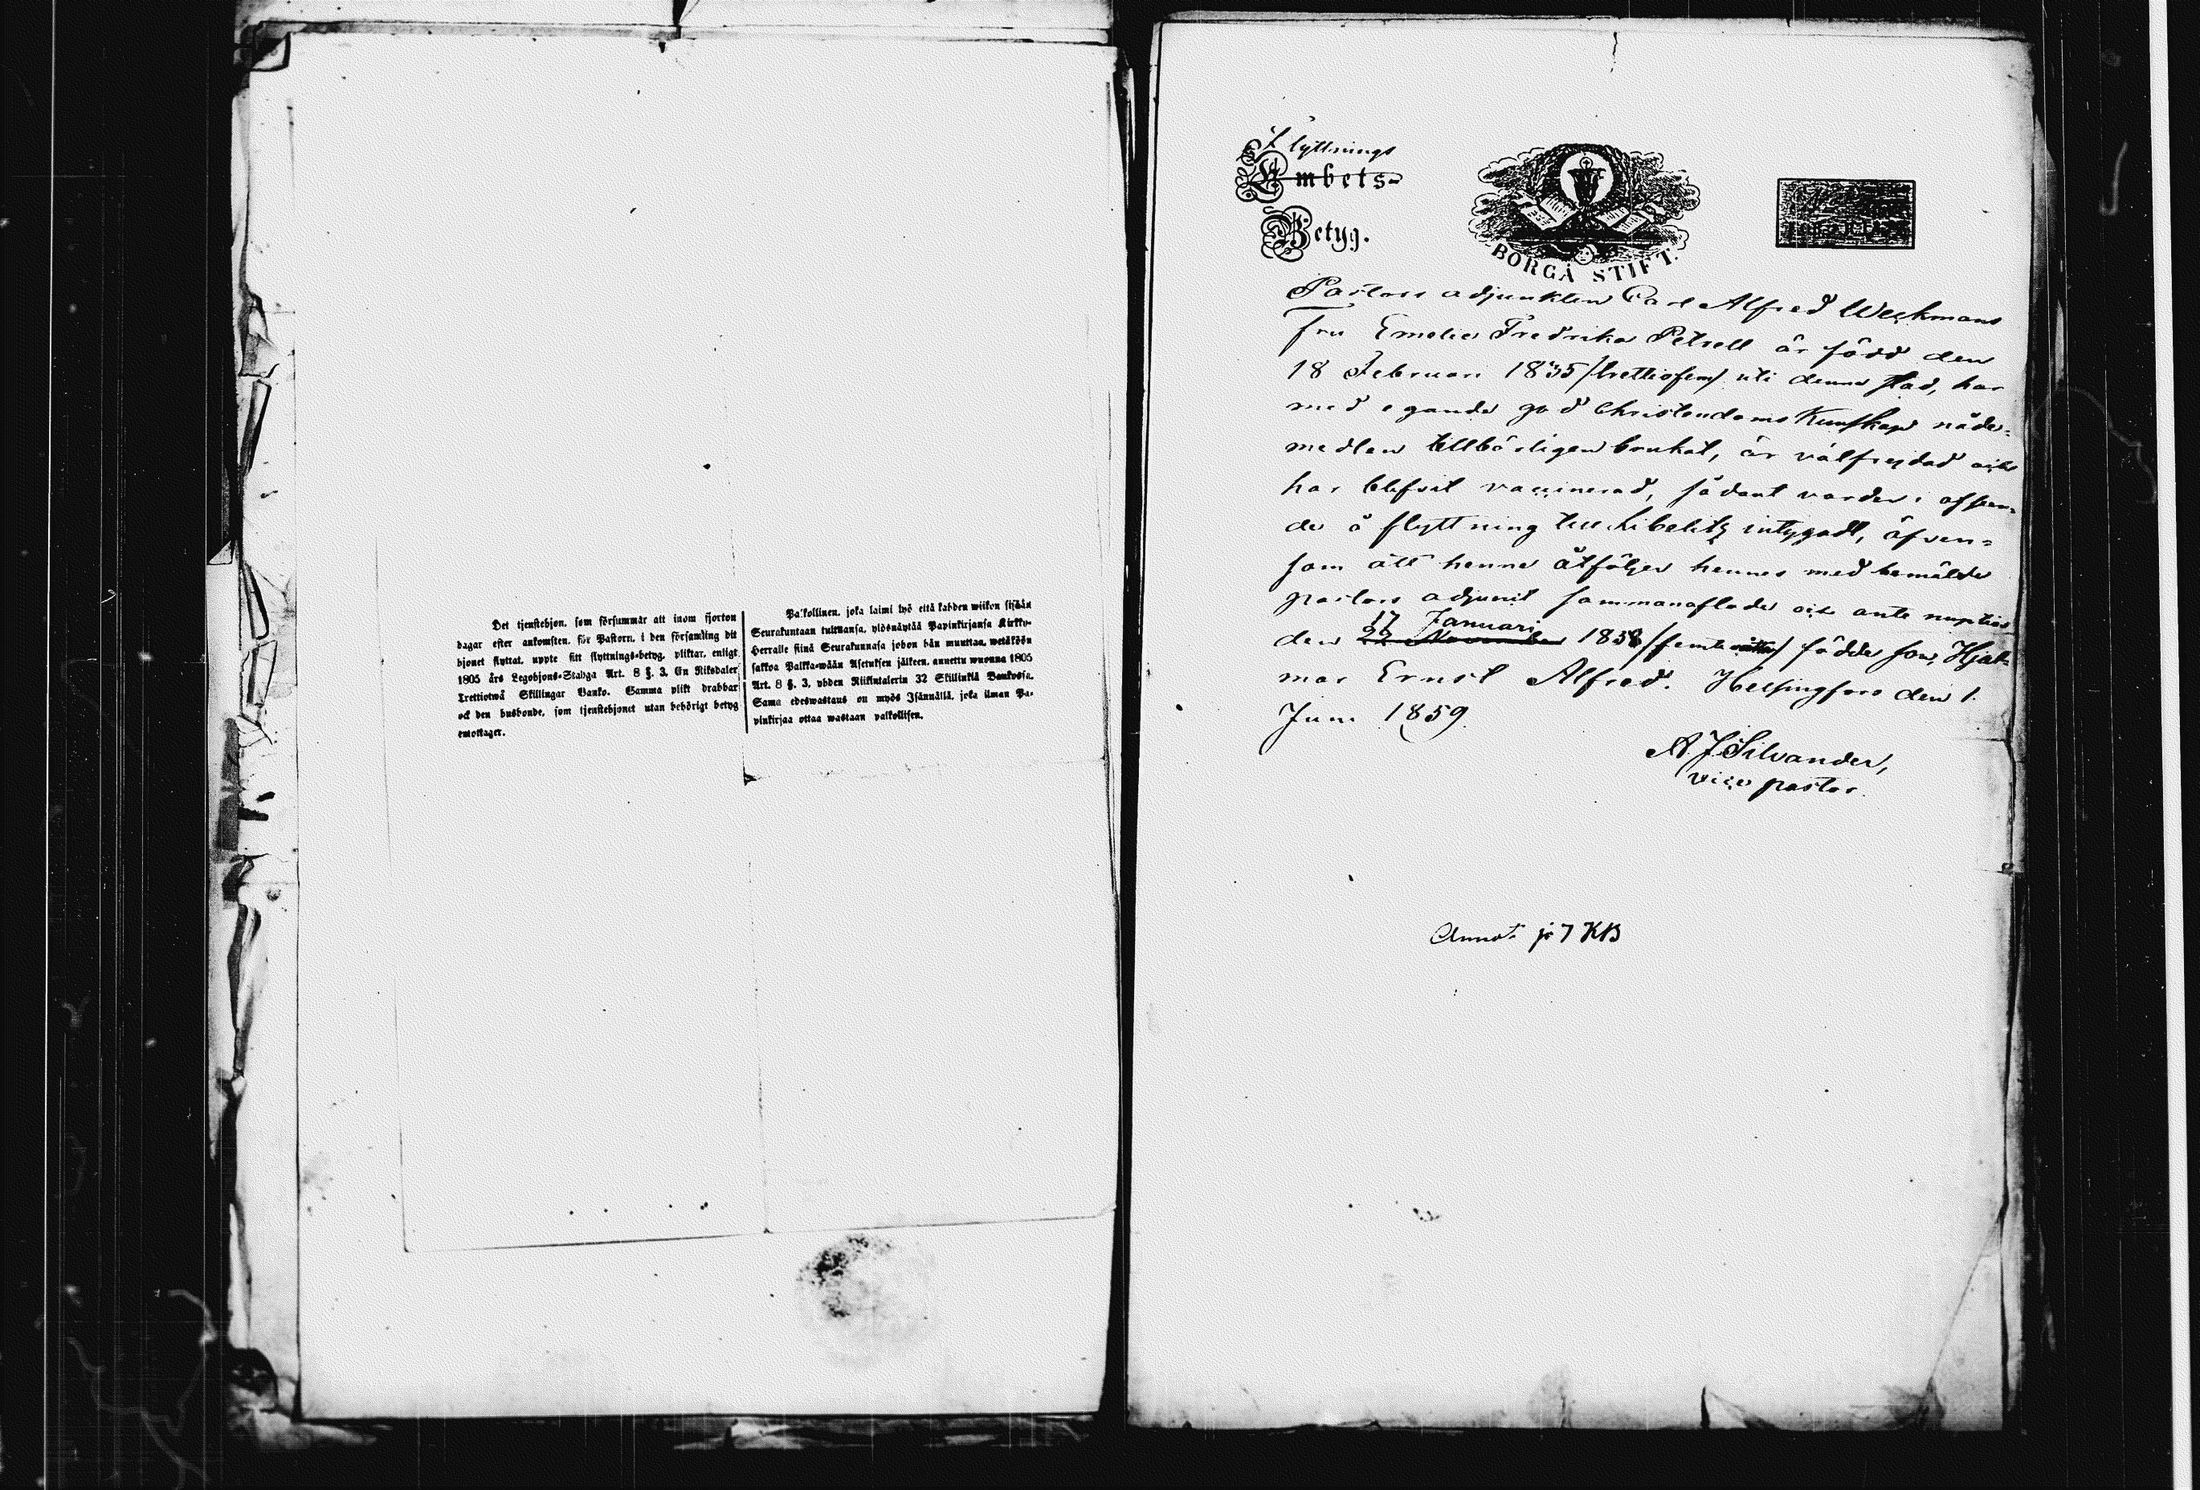 Det tjenstehjon, som försummar att inom fjorton
dagar efter ankomsten, för Pastorn, i den församling dit
hjonet flyttat, uppte sitt flyttnings-betyg, pliktar, enligt
1805 års Legohjons-Stadga Art. 8 §. 3, En Riksdaler
Trettiotwå Skillingar Banko. Samma plikt drabbar
ock den husbonde, som tjenstehjonet utan behörigt betyg
emottager.
Palkollinen, joka laimi lyö että kahden wiikon sisään
Seurakuntaan tultuansa, ylösnäytää Papinkirjansa Kirkko-
Herralle siinä Seurakunnasa johon hän muuttaa, wetäköön
sakkoa Palkka-wään Asetuksen jälkeen, annettu wuonna 1805
Art. 8 §. 3, yhden Riikintalerin 32 Skillinkiä Bankossa.
Sama edeswastaus on myös Isännällä, joka ilman Pa-
pinkirjaa ottaa wastaan palkollisen.
Flyttnings
Embets-
Betyg.
BORGÅ STIFT.
Pastors adjunkten Carl Alfred Weckmans
fru Emelie Fredrika Petrell är född den
18 Februari 1835 /trettiofem/ uti denna stad, har
med egande god Christendoms Kunskap nåde-
medlen tillbörligen brukat, är välfrejdad och
har blifvit vaccinerad, sådant varder i afseen-
de å flyttning till Libelitz intygadt, äfven-
som att henne åtföljer hennes med bemälde
pastors adjunct sammanaflade och ante nuptias
17 Januari
den 22 November 1858 /femtio åtta/ födde son, Hjal-
mar Ernst Alfred. Helsingfors den 1.
Juni 1859.
A. J. Silvander,
vice pastor.
Annot. p 7 KB